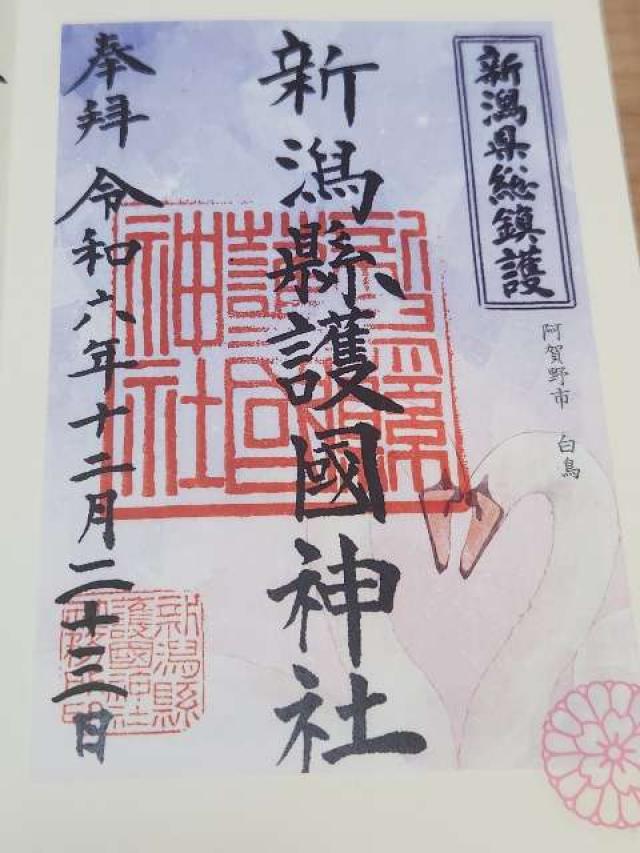 新潟県総鎮護
阿賀野市 白鳥
新潟縣護國神社
奉拝 令和六年十二月二十三日
新潟縣護國神社
新潟縣
護國神社